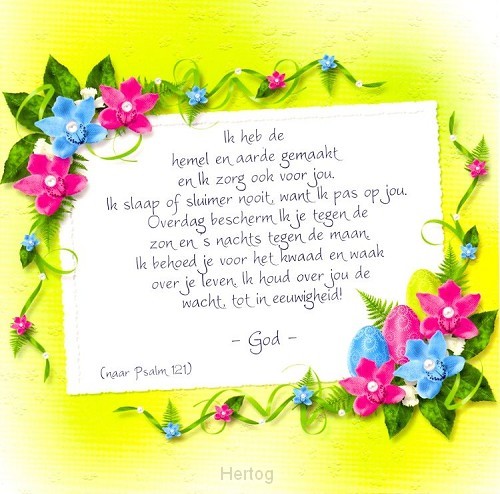 Ik heb de
hemel en aarde gemaakt
en Ik zorg ook voor jou.
Ik slaap of sluimer nooit, want Ik pas op jou.
Overdag bescherm Ik je tegen de
zon en s nachts tegen de maan.
Ik behoed je voor het kwaad en waak
over je leven. Ik houd over jou de
wacht, tot in eeuwigheid!
- God -
(naar Psalm 121)
Hertog